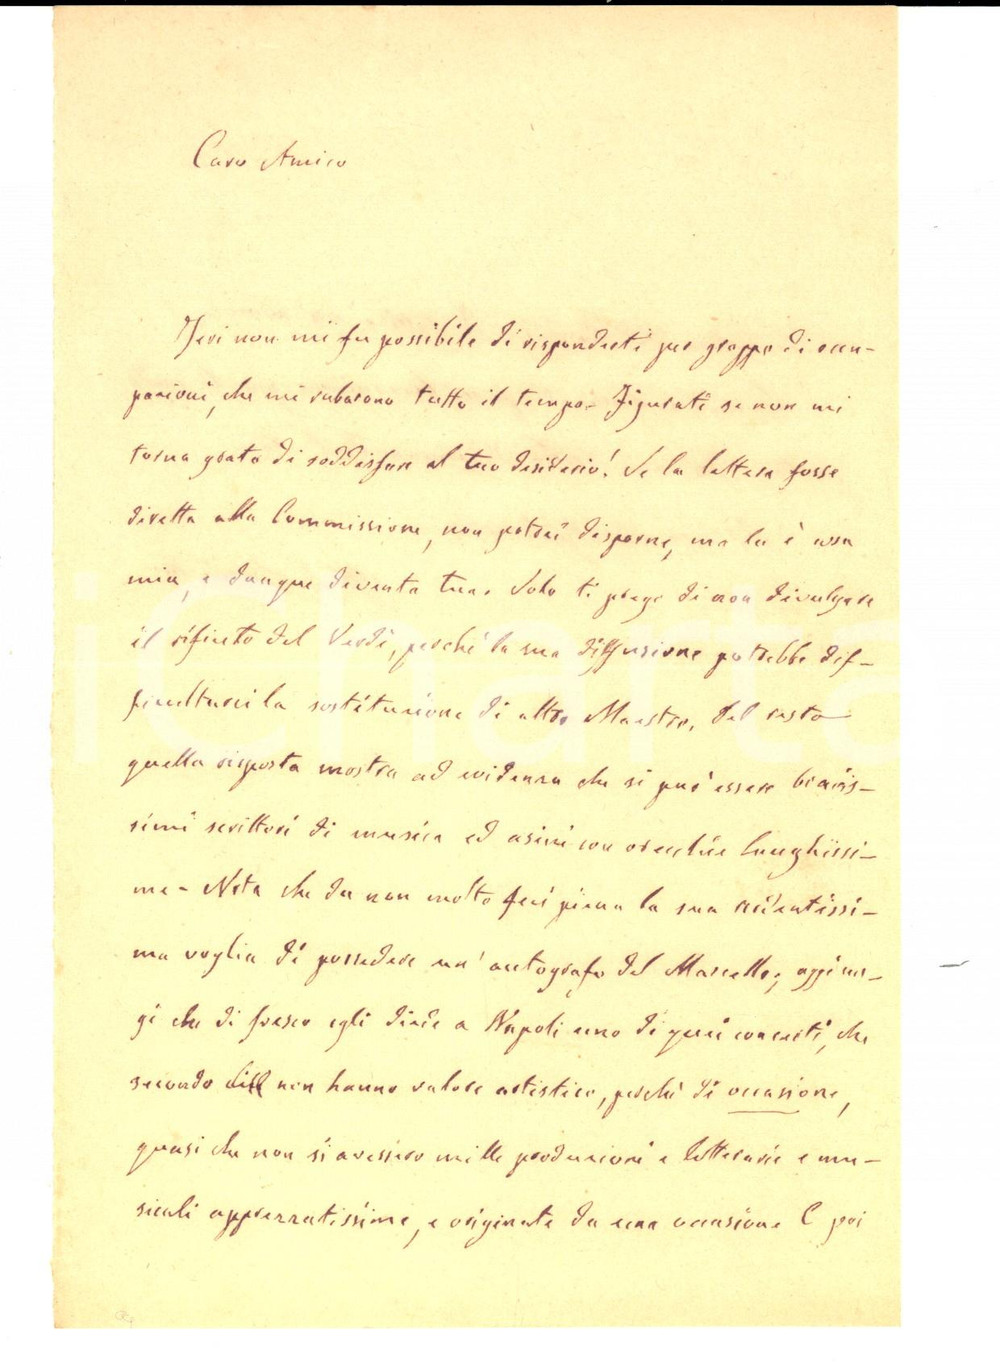 Caro Amico
Jeri non mi fu possibile di risponderti per groppo di occu-
pazioni, che mi rubarono tutto il tempo. Figurati se non mi
torna grato di soddisfare al tuo desiderio! Se la lettera fosse
diretta alla Commissione, non potrei disporne, ma la è cosa
mia, e dunque diventa tua. Solo ti prego di non divulgare
il rifiuto del Verdi, perché la sua diffusione potrebbe dif-
ficultarci la sostituzione di altro Maestro. Del resto
quella risposta mostra ad evidenza che si può essere bravis-
simi scrittori di musica ed asini con orecchie lunghissi-
me - Nota che da non molto feci piena la sua ardentissi-
ma voglia di possedere un' autografo del Marcello; aggiun-
gi che di fresco egli diede a Napoli uno di quei concerti, che
secondo lui non hanno valore artistico, perché di occasione,
quasi che non si avessero mille produzioni e letterarie e mu-
sicali apprezzatissime, e originate da una occasione E poi